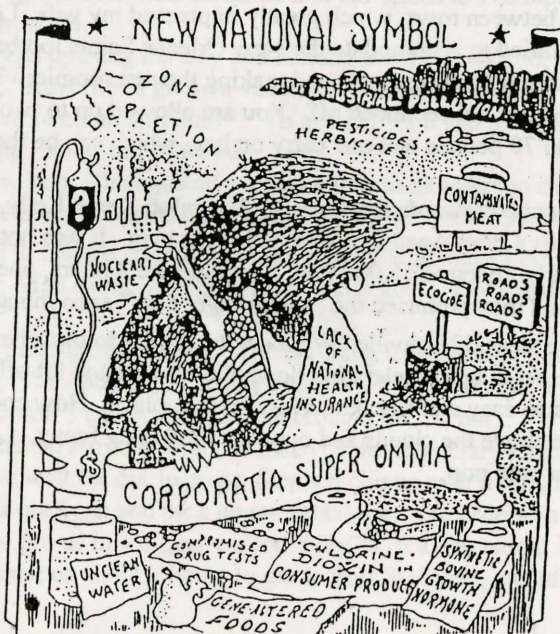 NEW NATIONAL SYMBOL
OZONE
DEPLETION
INDUSTRIAL POLLUTION
PESTICIDES
HERBICIDES
?
CONTAMINATED
MEAT
NUCLEAR
WASTE
ECOCIDE
ROADS
ROADS
ROADS
LACK
OF
NATIONAL
HEALTH
INSURANCE
$
CORPORATIA SUPER OMNIA
UNCLEAN
WATER
COMPROMISED
DRUG TESTS
CHLORINE-
DIOXIN IN
CONSUMER PRODUCTS
SYNTHETIC
BOVINE
GROWTH
HORMONE
GENE ALTERED
FOODS